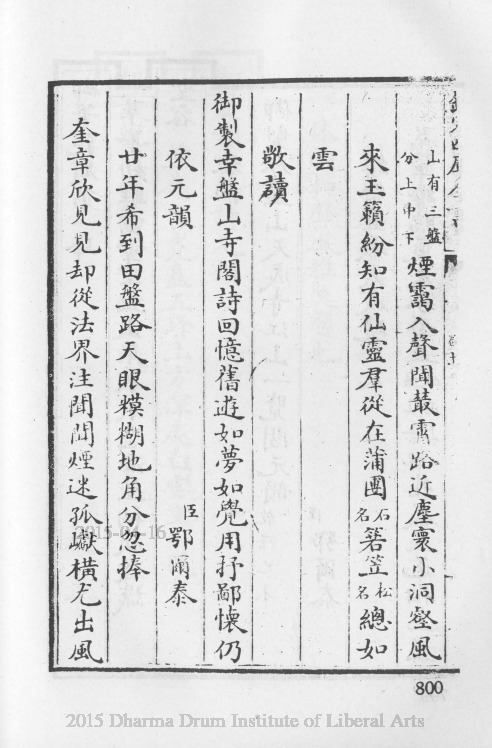 山有三盤
分上中下
煙靄入聲聞叢霄路近塵寰小洞壑風
來玉籟紛知有仙靈羣從在蒲團石名箬笠松名總如
雲
敬讀
御製幸盤山寺閣詩回憶舊遊如夢如覺用抒鄙懷仍
依元韻 臣鄂爾泰
廿年希到田盤路天眼糢糊地角分忽捧
奎章欣見見却從法界注聞聞煙迷孤巘橫尤出風
2015-04-16
800
2015 Dharma Drum Institute of Liberal Arts